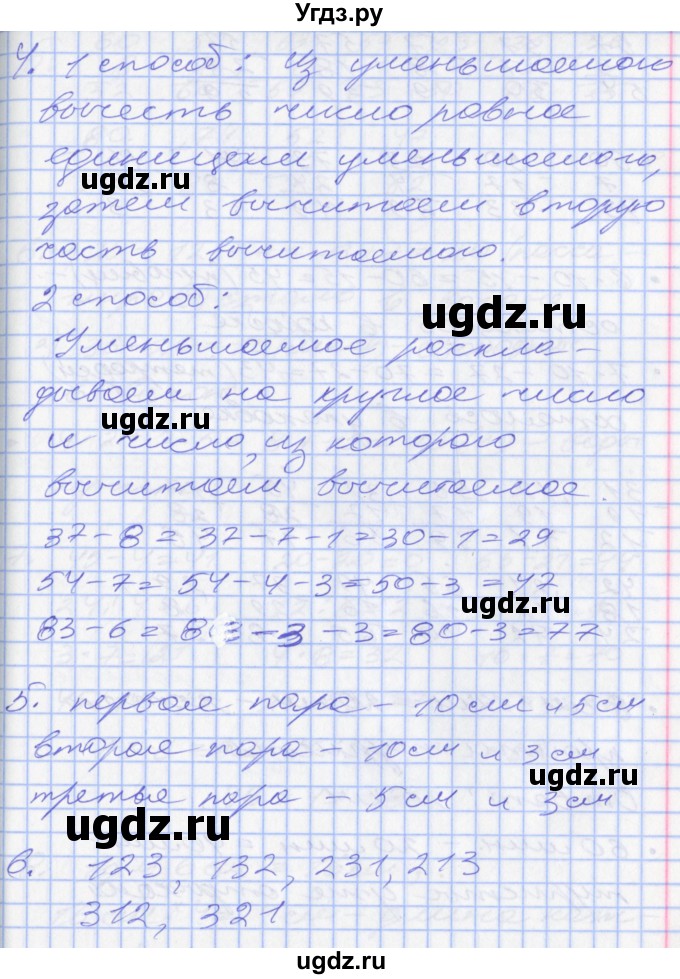 Угдз.ру
4. 1 способ: из уменьшаемого
вычесть число равное
единицам уменьшаемого,
ugdz.ru
затем вычитаем вторую
часть вычитаемого.
2 способ:
ugdz.ru
Уменьшаемое раскла-
дываем на круглое число
ugdz.ru
и число, из которого
вычитаем вычитаемое.
37-8=37-7-1=30-1=29
54-7=54-4-3=50-3=47
ugdz.ru
83-6=83-3-3=80-3=77
5. первая пара - 10см и 5см
вторая пара - 10см и 3см
ugdz.ru
третья пара - 5см и 3см
ugdz.ru
6. 123, 132, 231, 213
312, 321
ugdz.ru